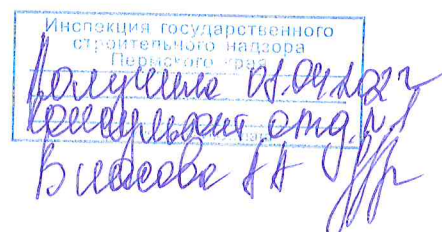 Инспекция государственного
строительного надзора
Пермского края
Получила 01.04.2022г
Консультант отд. №1
Власова АА